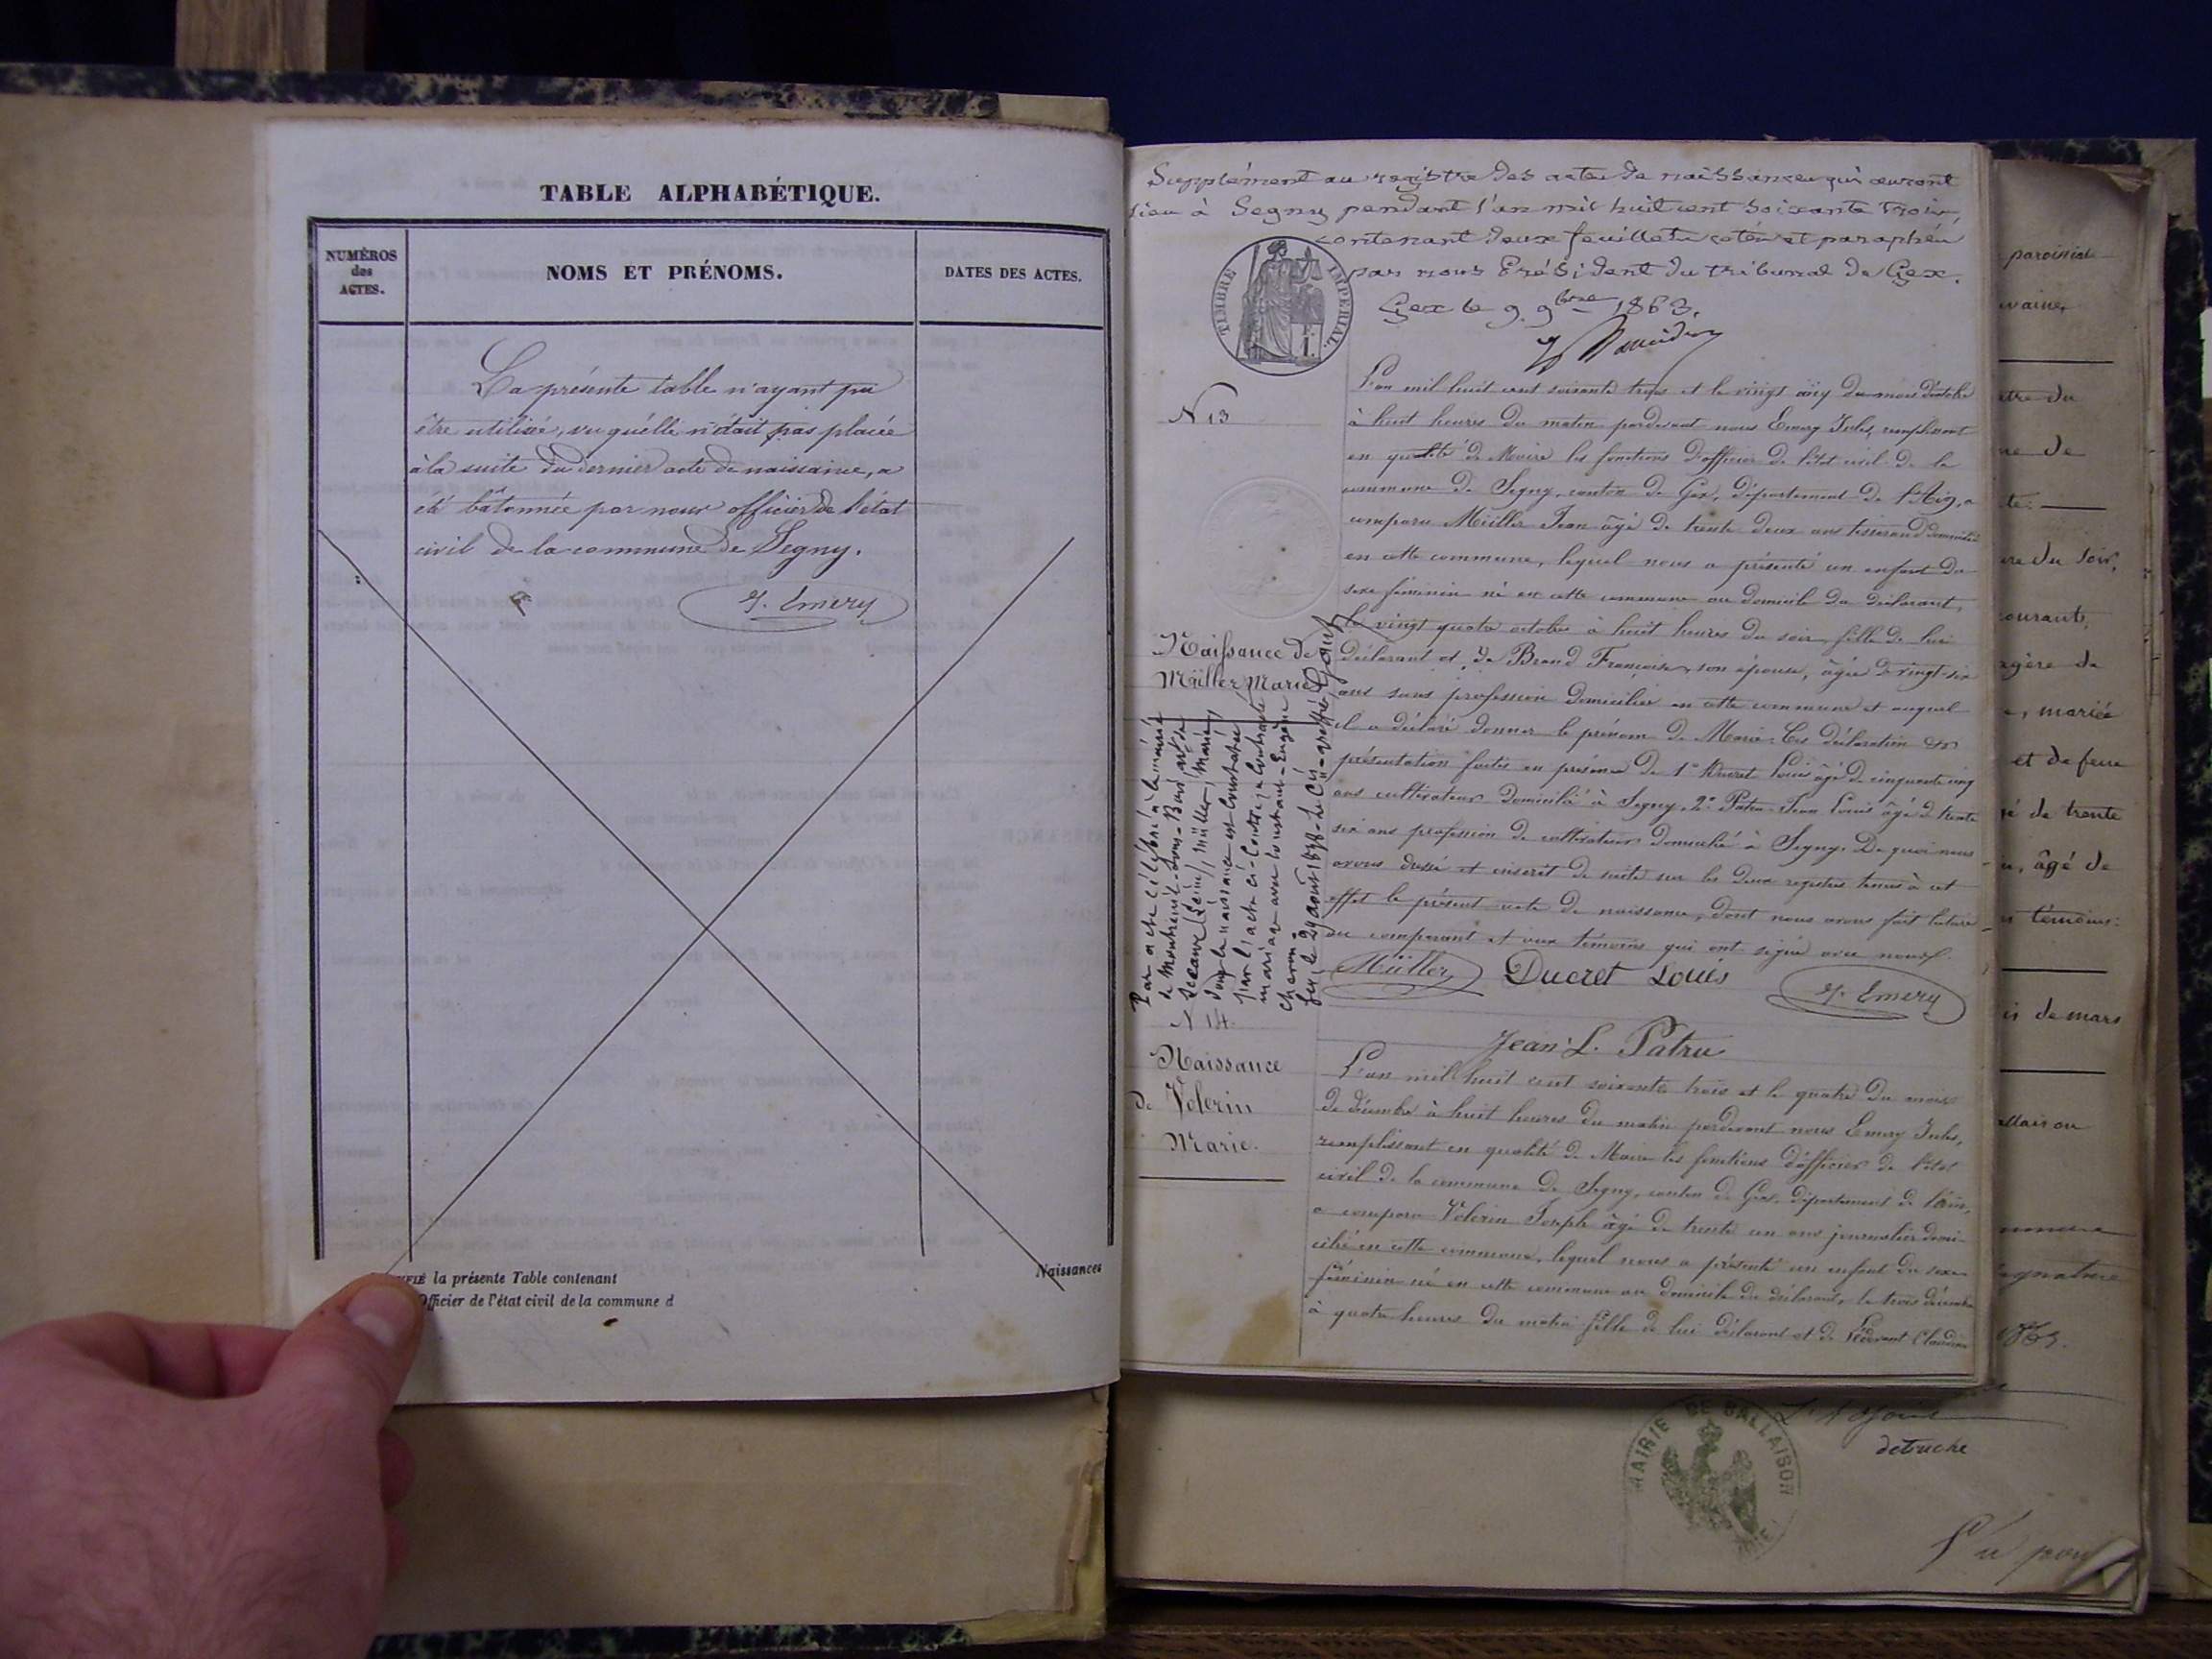 TABLE ALPHABÉTIQUE.
NUMÉROS
des
ACTES.
NOMS ET PRÉNOMS.
DATES DES ACTES.
La présente table n'ayant pu
être utilisée, vu qu'elle n'était pas placée
à la suite du dernier acte de naissance, a
été bâtonnée par nous officier de l'état
civil de la commune de Segny.
J. Emery
la présente Table contenant
Officier de l'état civil de la commune d
Naissances
Supplément au registre des actes de naissances qui auront
lieu à Segny pendant l'an mil huit cent soixante trois,
contenant deux feuillets cotés et paraphés
par nous Président du tribunal de Gex.
Gex le 9 9bre 1863.
TIMBRE IMPÉRIAL
N 13
Naissance de
Müller Marie
L'an mil huit cent soixante trois et le vingt cinq du mois d'octobre
à huit heures du matin pardevant nous Emery Jules, remplissant
en qualité de Maire les fonctions d'officier de l'état civil de la
commune de Segny, canton de Gex, département de l'Ain, a
comparu Müller Jean âgé de trente deux ans tisserand domicilié
en cette commune, lequel nous a présenté un enfant du
sexe féminin né en cette commune au domicile du déclarant,
le vingt quatre octobre à huit heures du soir, fille de lui
déclarant et de Brand Françoise, son épouse, âgée de vingt-six
ans sans profession domiciliée en cette commune et auquel
il a déclaré donner le prénom de Marie. Ces déclaration et
présentation faites en présence de 1° Ducret Louis âgé de cinquante cinq
ans cultivateur domicilié à Segny, 2° Patru Jean Louis âgé de trente
six ans profession de cultivateur domicilié à Segny. De quoi nous
avons dressé et inscrit de suite sur les deux registres tenus à cet
effet le présent acte de naissance, dont nous avons fait lecture
au comparant et aux témoins qui ont signé avec nous.
Müller Ducret Louis J. Emery
Jean L. Patru
Par acte célébré à la mairie
de Montreuil-sous-Bois,
Müller, Marie,
dont la naissance est constatée
par l'acte ci-contre, a contracté
mariage avec Constant-Eugène
Cheron.
Gex, le 29 août 1898. Le
N 14.
Naissance
de Volerin
Marie.
L'an mil huit cent soixante trois et le quatre du mois
de décembre à huit heures du matin pardevant nous Emery Jules,
remplissant en qualité de Maire les fonctions d'officier de l'état
civil de la commune de Segny, canton de Gex, département de l'Ain,
a comparu Volerin Joseph âgé de trente un ans journalier domi-
cilié en cette commune, lequel nous a présenté un enfant du sexe
féminin né en cette commune au domicile du déclarant, le trois décembre
à quatre heures du matin fille de lui déclarant et de Claudine
paroissiale
ne de
re du soir,
courant,
agère de
, mariée
et de feue
gé de trente
, âgé de
témoins:
de mars
MAIRIE DE BALLAISON
detruche
Vu pour